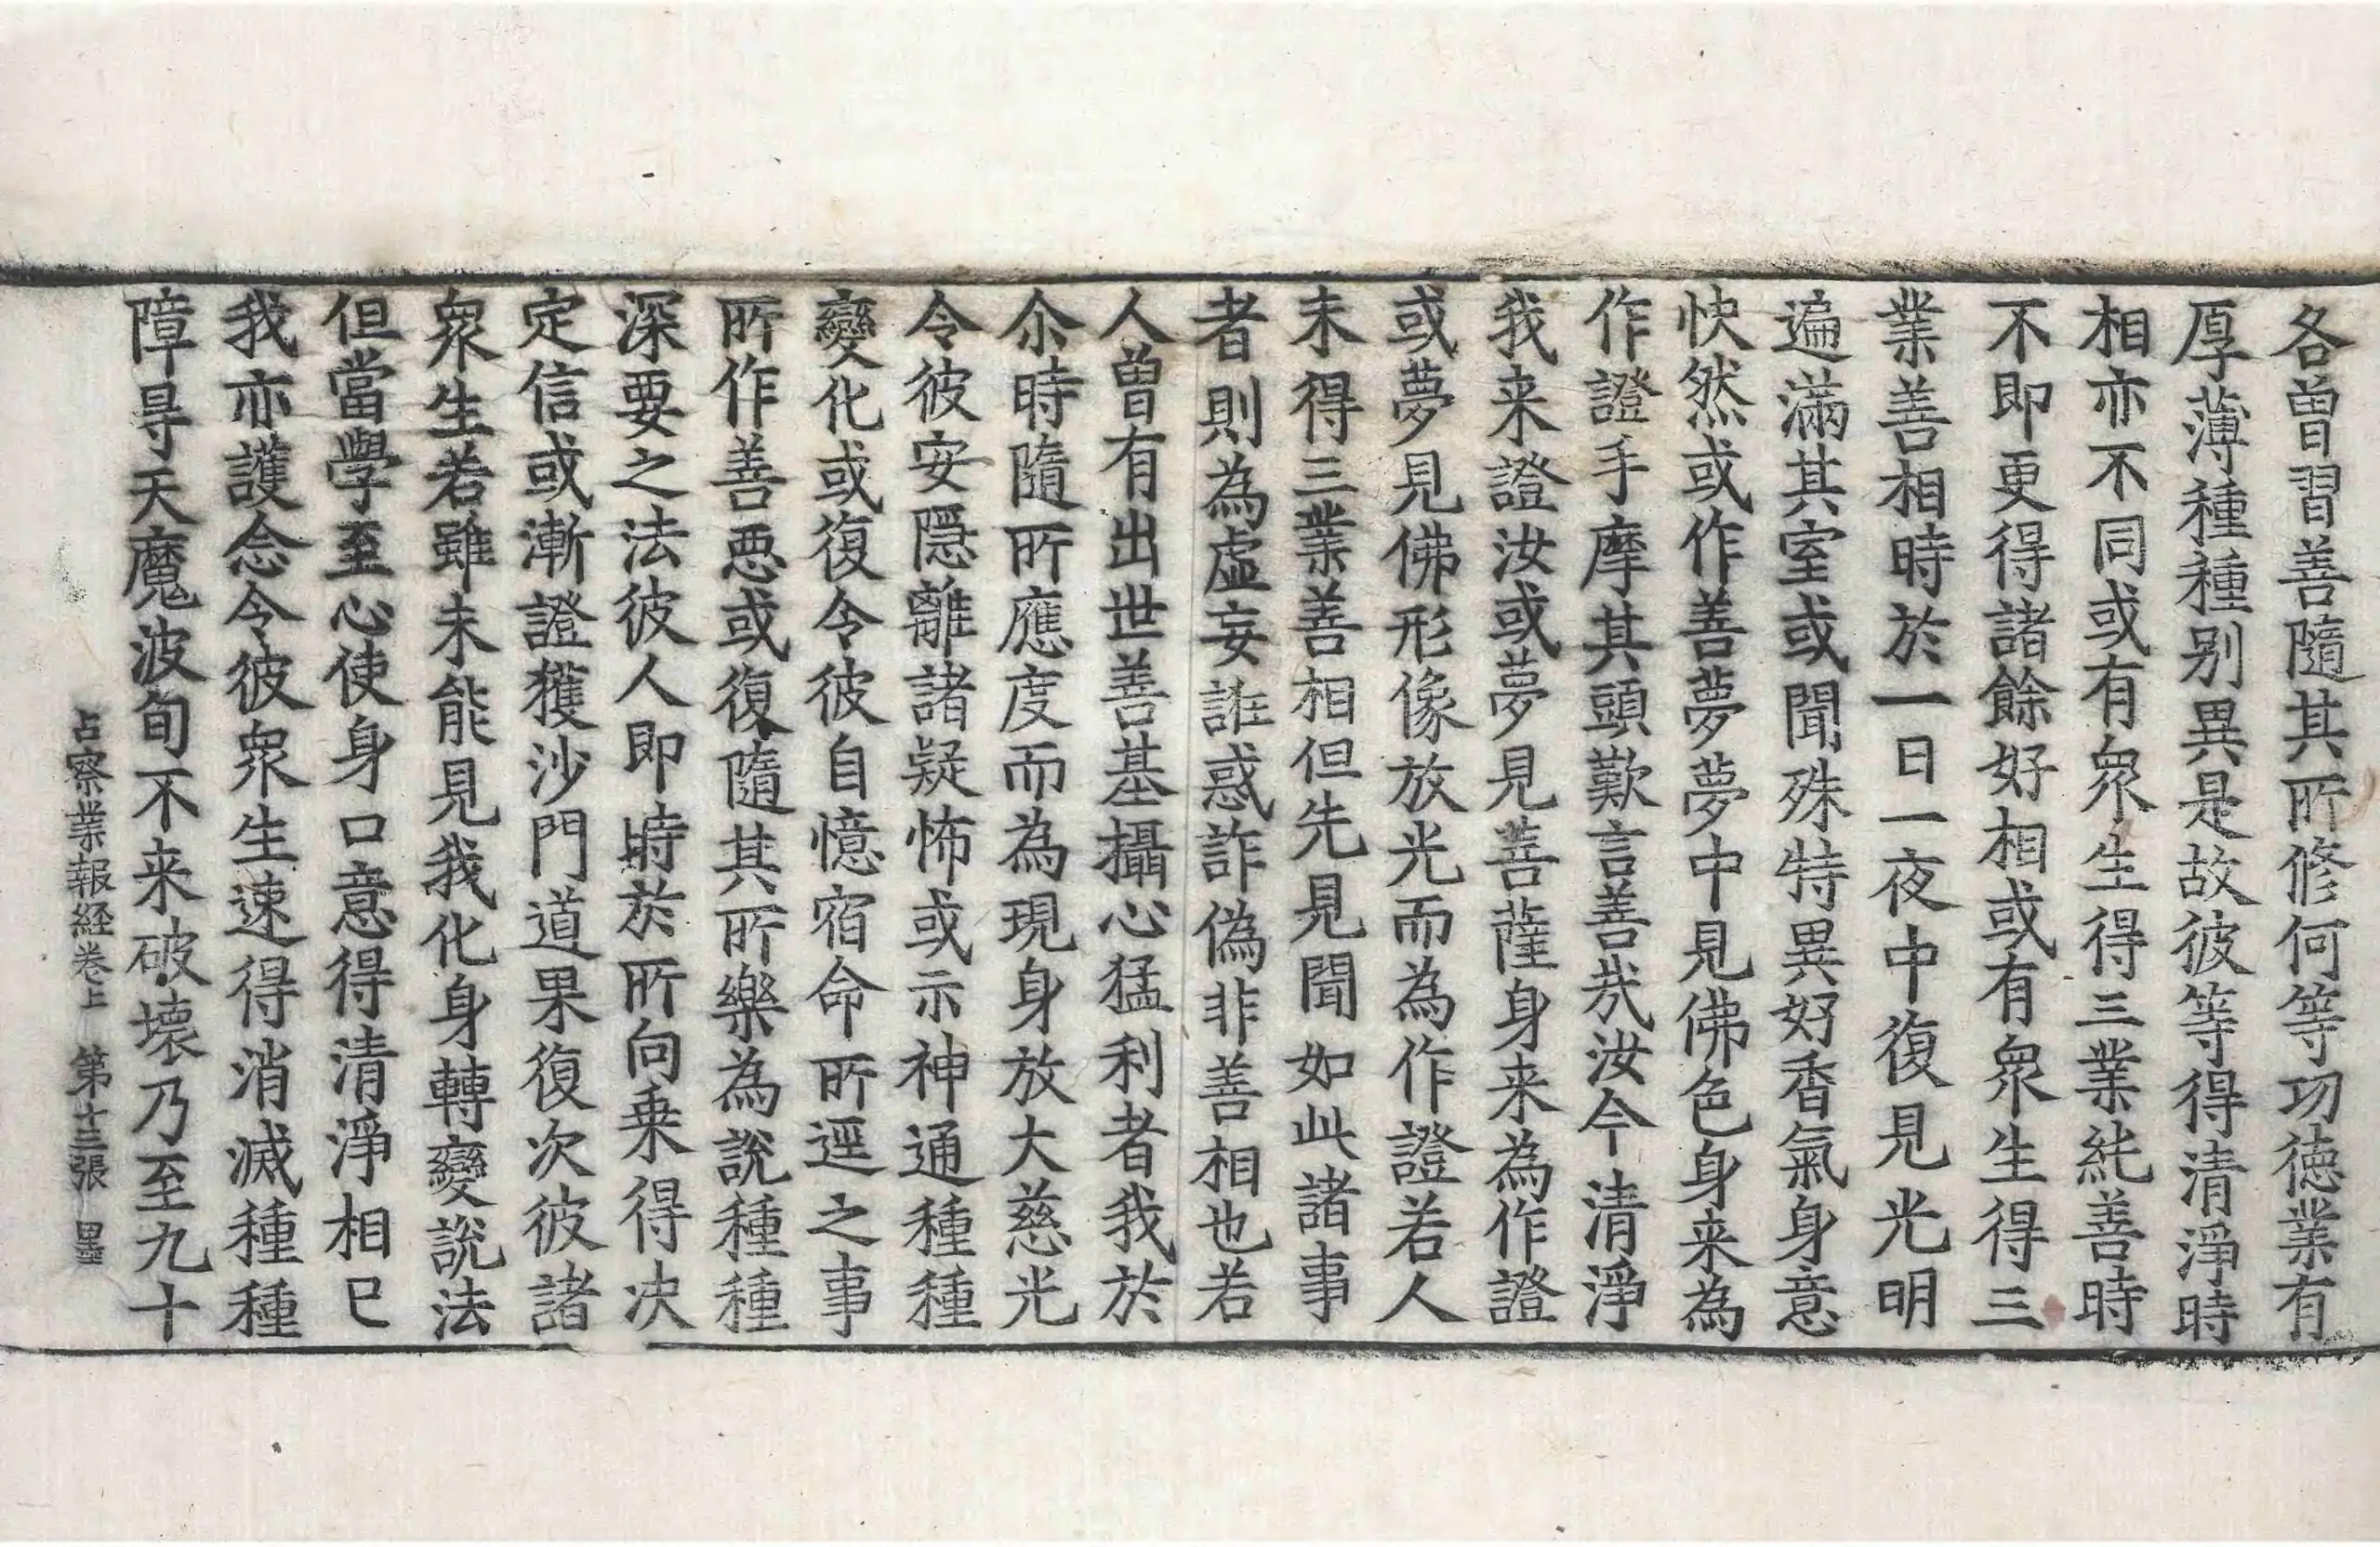 各曾習善隨其所修何等功徳業有
厚薄種種别異是故彼等得清淨時
相亦不同或有衆生得三業純善時
不即更得諸餘好相或有衆生得三
業善相時於一日一夜中復見光明
遍滿其室或聞殊特異好香氣身意
快然或作善夢夢中見佛色身来為
作證手摩其頭歎言善㢤汝今清淨
我来證汝或夢見菩薩身来為作證
或夢見佛形像放光而為作證若人
未得三業善相但先見聞如此諸事
者則為虛妄誑惑詐偽非善相也若
人曾有出世善基攝心猛利者我於
尒時隨所應度而為現身放大慈光
令彼安隱離諸疑怖或示神通種種
變化或復令彼自憶宿命所逕之事
所作善惡或復隨其所樂為說種種
深要之法彼人即時於所向乗得决
定信或漸證獲沙門道果復次彼諸
衆生若雖未能見我化身轉變說法
但當學至心使身口意得清淨相已
我亦護念令彼衆生速得消滅種種
障㝵天魔波旬不来破壞乃至九十
占察業報經卷上 第十三張 墨